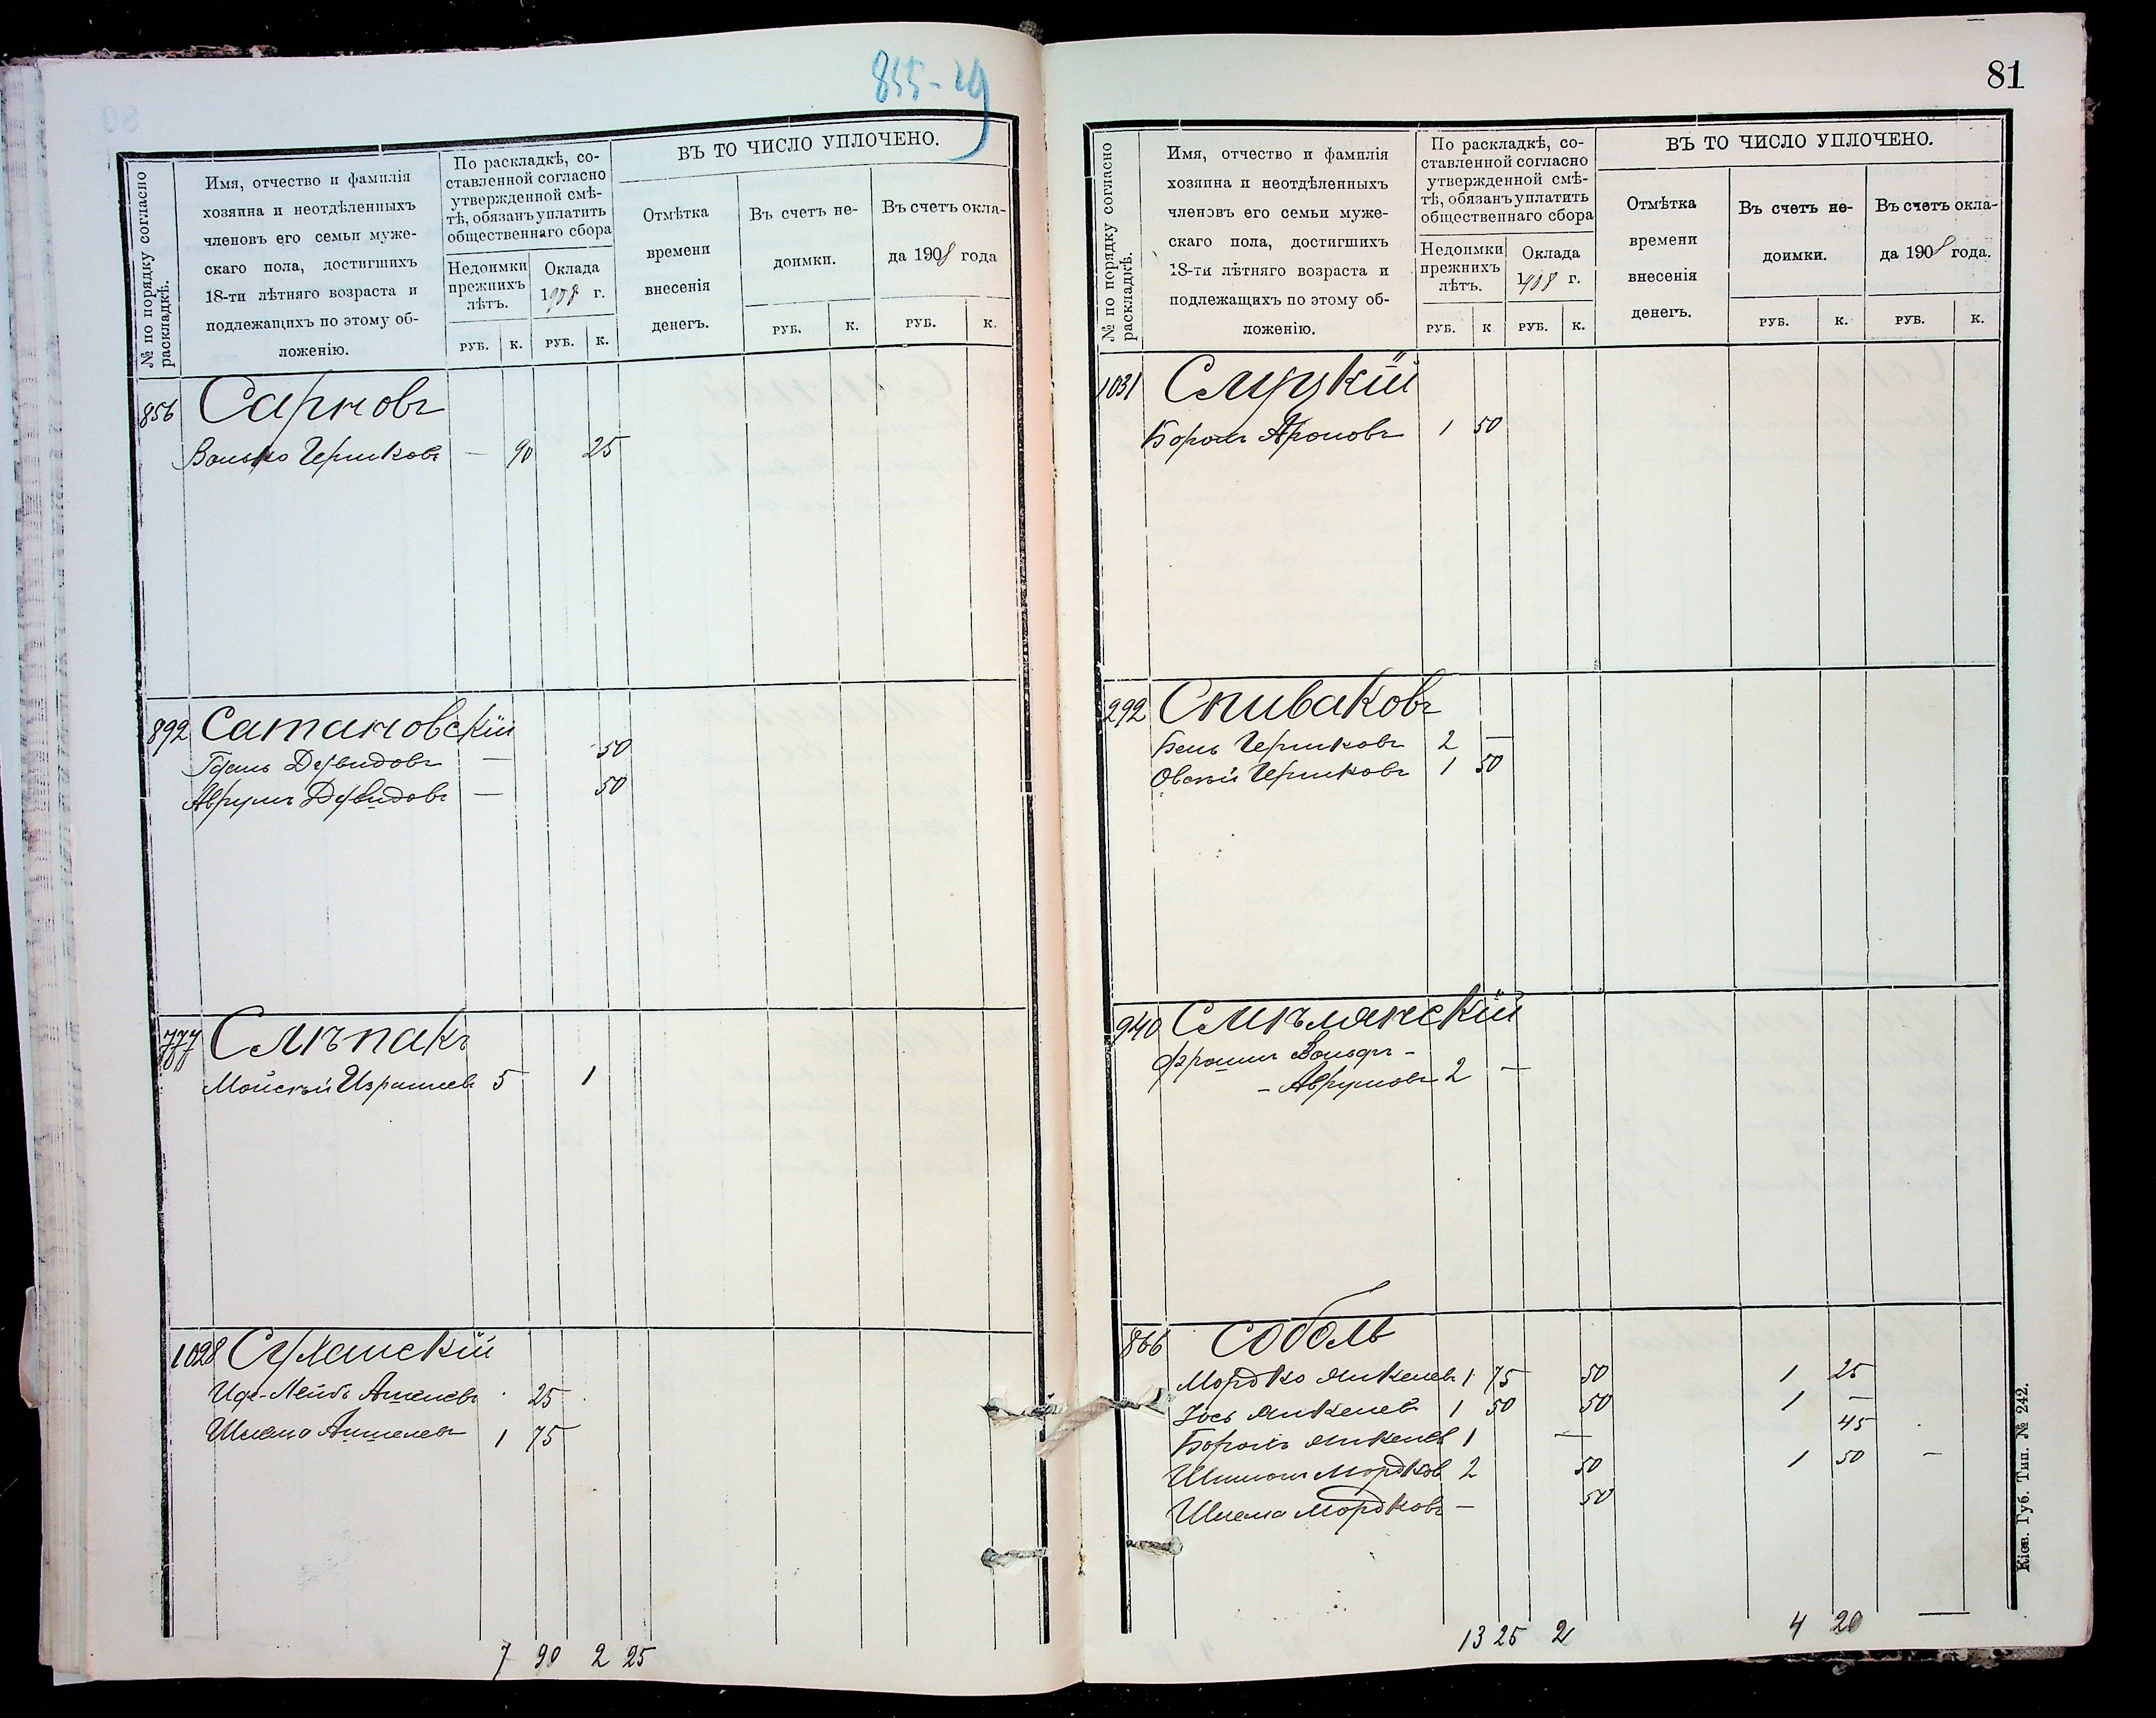 855-29
ВЪ ТО ЧИСЛО УПЛОЧЕНО.
№ по порядку согласно раскладкѣ.
Имя, отчество и фамилія
хозяина и неотдѣленныхъ
членовъ его семьи муже-
скаго пола, достигшихъ
18-ти лѣтняго возраста и
подлежащихъ по этому об-
ложенію.
По раскладкѣ, со-
ставленной согласно
утвержденной смѣ-
тѣ, обязанъ уплатить
общественнаго сбора
Недоимки
прежнихъ
лѣтъ.
Оклада
1908 г.
Отмѣтка
времени
внесенія
денегъ.
Въ счетъ не-
доимки.
Въ счетъ окла-
да 1908 года
РУБ. К. РУБ. К. РУБ. К. РУБ. К.
856 Сарновъ
Волько Гершковъ — 90 25
892 Сатановскій
Гдаль Дувидовъ — 50
Аврумъ Дувидовъ — 50
777 Слѣпакъ
Мойсѣй Израилев 5 1
1028
Лейбъ 25
Шлема 1 75
7 90 2 25
81
ВЪ ТО ЧИСЛО УПЛОЧЕНО.
№ по порядку согласно раскладкѣ.
Имя, отчество и фамилія
хозяина и неотдѣленныхъ
членовъ его семьи муже-
скаго пола, достигшихъ
18-ти лѣтняго возраста и
подлежащихъ по этому об-
ложенію.
По раскладкѣ, со-
ставленной согласно
утвержденной смѣ-
тѣ, обязанъ уплатить
общественнаго сбора
Недоимки
прежнихъ
лѣтъ.
Оклада
1908 г.
Отмѣтка
времени
внесенія
денегъ.
Въ счетъ не-
доимки.
Въ счетъ окла-
да 1908 года.
РУБ. К РУБ. К. РУБ. К. РУБ. К.
1031 Слуцкій
Борохъ Ароновъ 1 50
292 Спиваковъ
Бень Гершковъ 2 —
Овсѣй Гершковъ 1 50
940 Смѣлянскій
Фроимъ Вольфъ -
- Аврумовъ 2 —
866 Соболь
Мордко Янкелев 1 75 50 1 25
Іось Янкелев 1 50 50 1 —
Борохъ Янкелев 1 — 45
Шимонъ Мордков 2 50 1 50 —
Шлема Мордковъ — 50
13 25 2 4 20 —
Кіев. Губ. Тип. № 242.